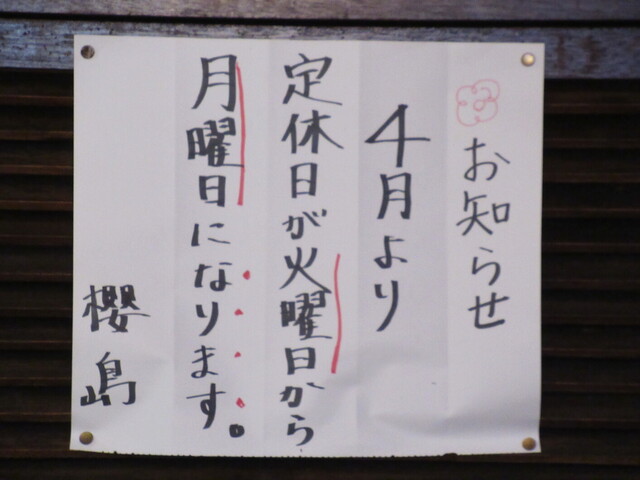 お知らせ
4月より
定休日が火曜日から
月曜日になります。
櫻島